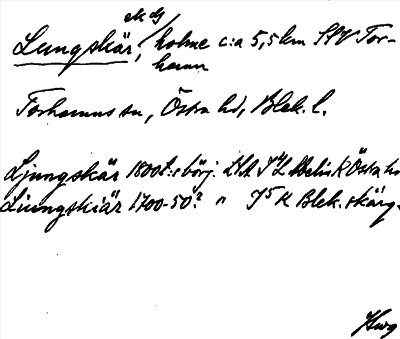 ek dy
Lungskär, holme c:a 5,5 km SSV Tor-
hamn
Torhamns sn, Östra hd, Blek. l.
Ljungskär 1800t:s börj. LSA Östra hd
Ljungskiär 1700-50? " Blek. skärg.
Hwg